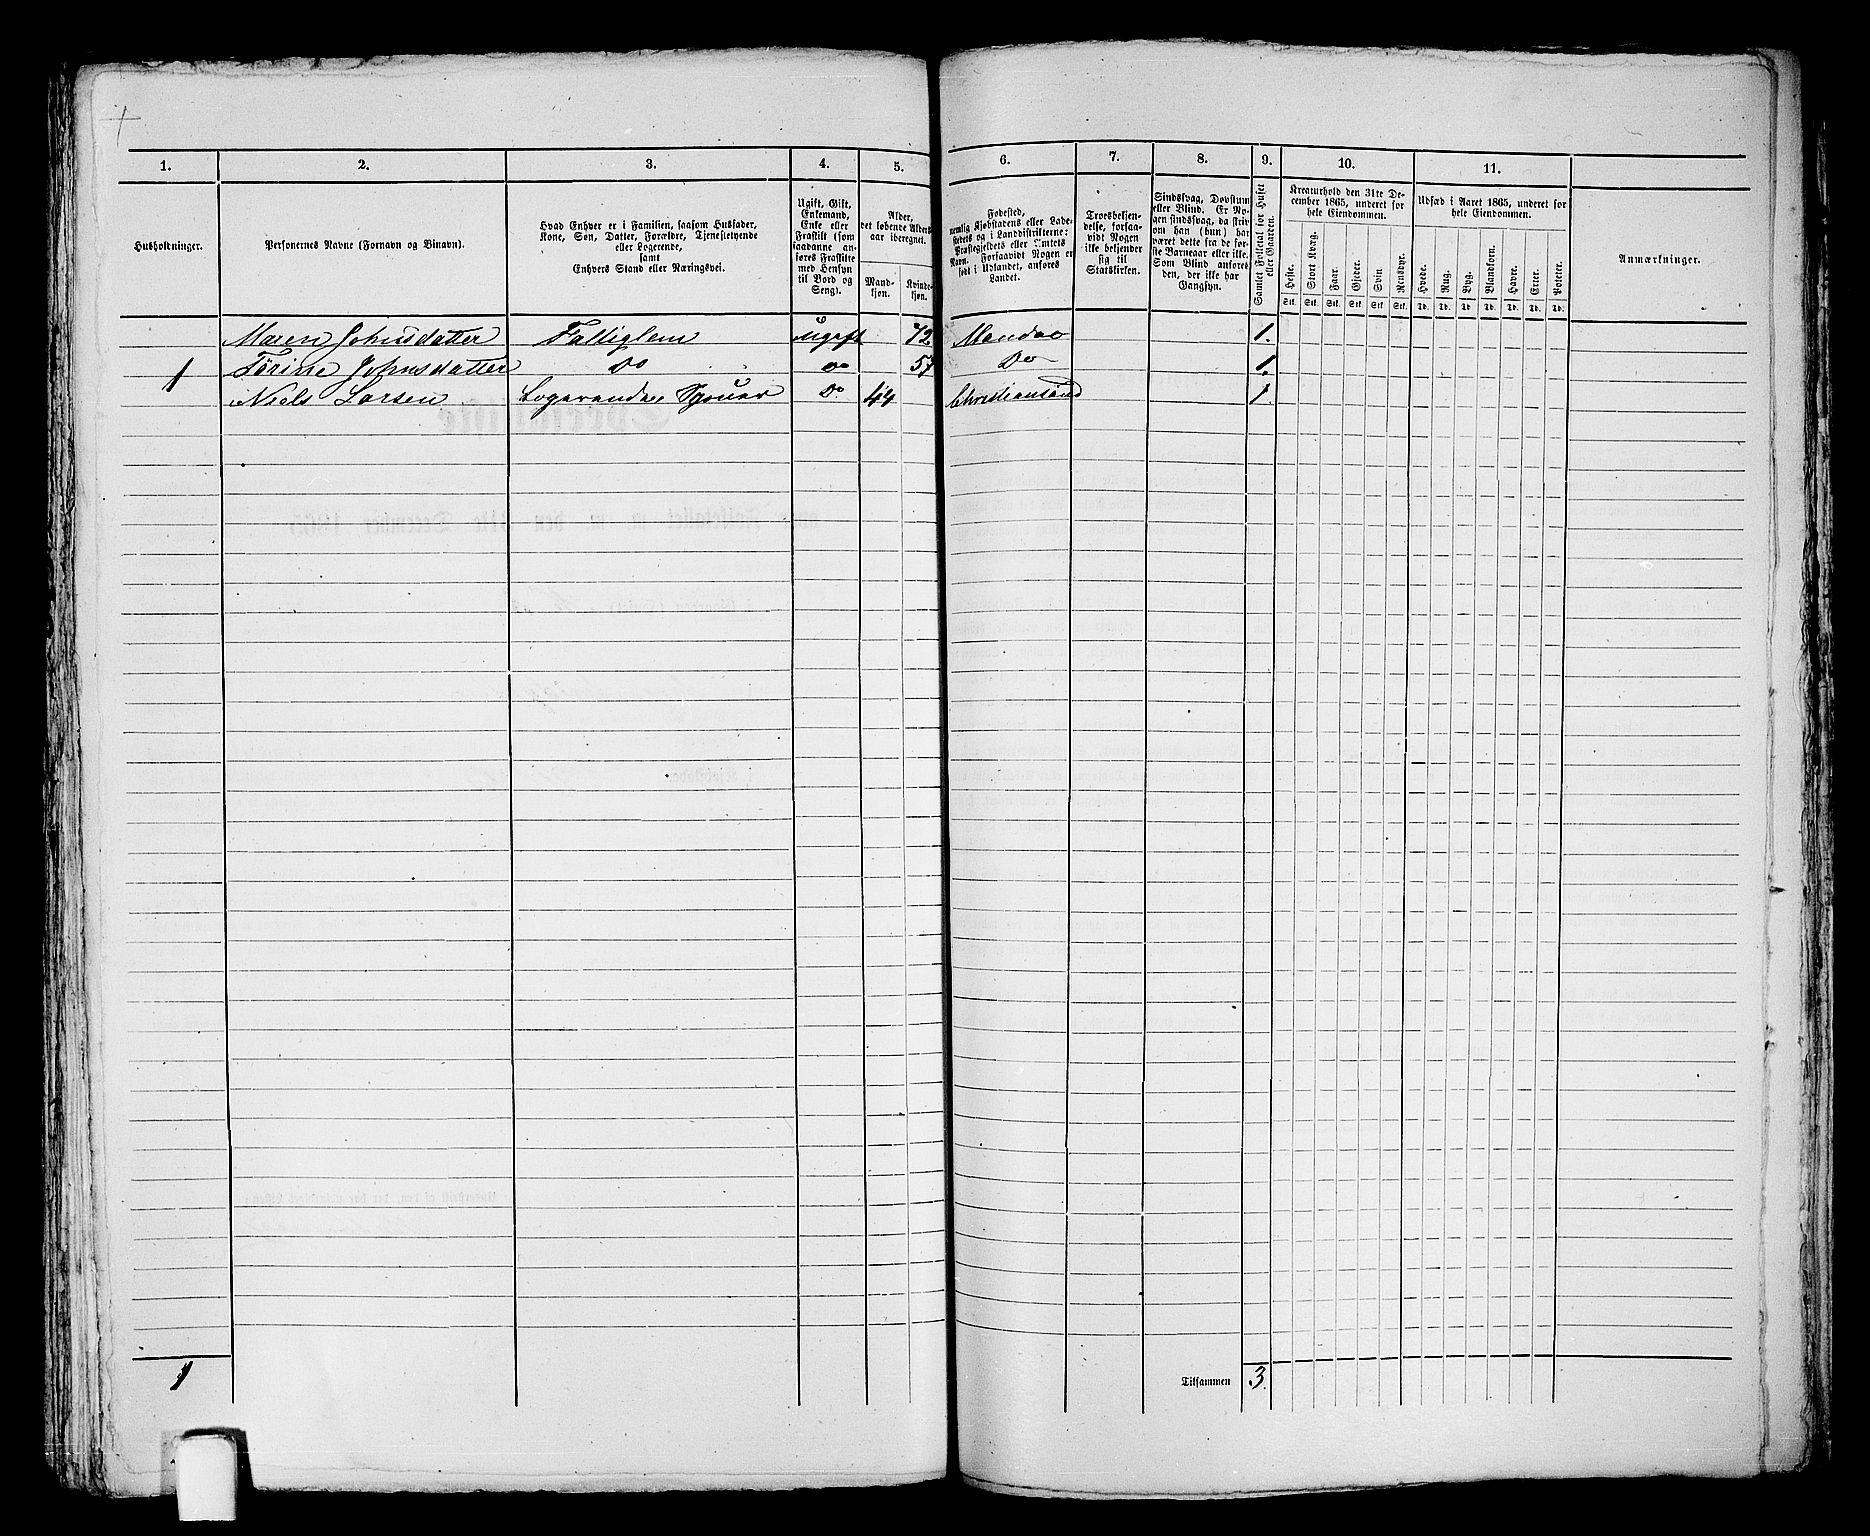 1. 2. 3. 4. 5. 6. 7. 8. 9. 10. 11.
Husholdninger.
Personernes Navne (Fornavn og Binavn).
Hvad Enhver er i Familien, saasom Husfader,
Kone, Søn, Datter, Forældre, Tjenestetyende
eller Logerende,
samt
Enhvers Stand eller Næringsvei.
Ugift, Gift,
Enkemand,
Enke eller
Fraskilt (som
saadanne an-
føres Fraskilte
med Hensyn
til Bord og
Seng).
Alder,
det løbende Alders-
aar iberegnet.
Mand-
kjøn.
Kvinde-
kjøn.
Fødested,
nemlig Kjøbstadens eller Lade-
stedets og i Landdistrikterne:
Præstegjeldets eller Amtets
Navn. Forsaavidt Nogen er
født i Udlandet, anføres
Landet.
Troesbekjen-
delse, forsaa-
vidt Nogen
ikke bekjender
sig til
Statskirken.
Sindssvag, Døvstum
eller Blind. Er No-
gen sindssvag, da skriv
om han (hun) har
været dette fra de før-
ste Barneaar eller ikke.
Som Blind anføres
den, der ikke har
Gangsyn.
Samlet Folketal for Huset
eller Gaarden.
Kreaturhold den 31te De-
cember 1865, underet for
hele Eiendommen.
Heste. Stort Kvæg. Faar. Gjeder. Svin Rensdyr.
Stk. Stk. Stk. Stk. Stk. Stk.
Udsæd i Aaret 1865, underet for
hele Eiendommen.
Hvede. Rug. Byg. Blandkorn. Havre. Erter. Poteter.
Td. Td. Td. Td. Td. Td. Td.
Anmærkninger.
Maren Johnsdatter Fattiglem Ugift 72 Mandal 1.
1 Tørine Johnsdatter Do Do 57 Do 1.
Niels Larsen Do 44 Christiansand 1.
1
Tilsammen 3.